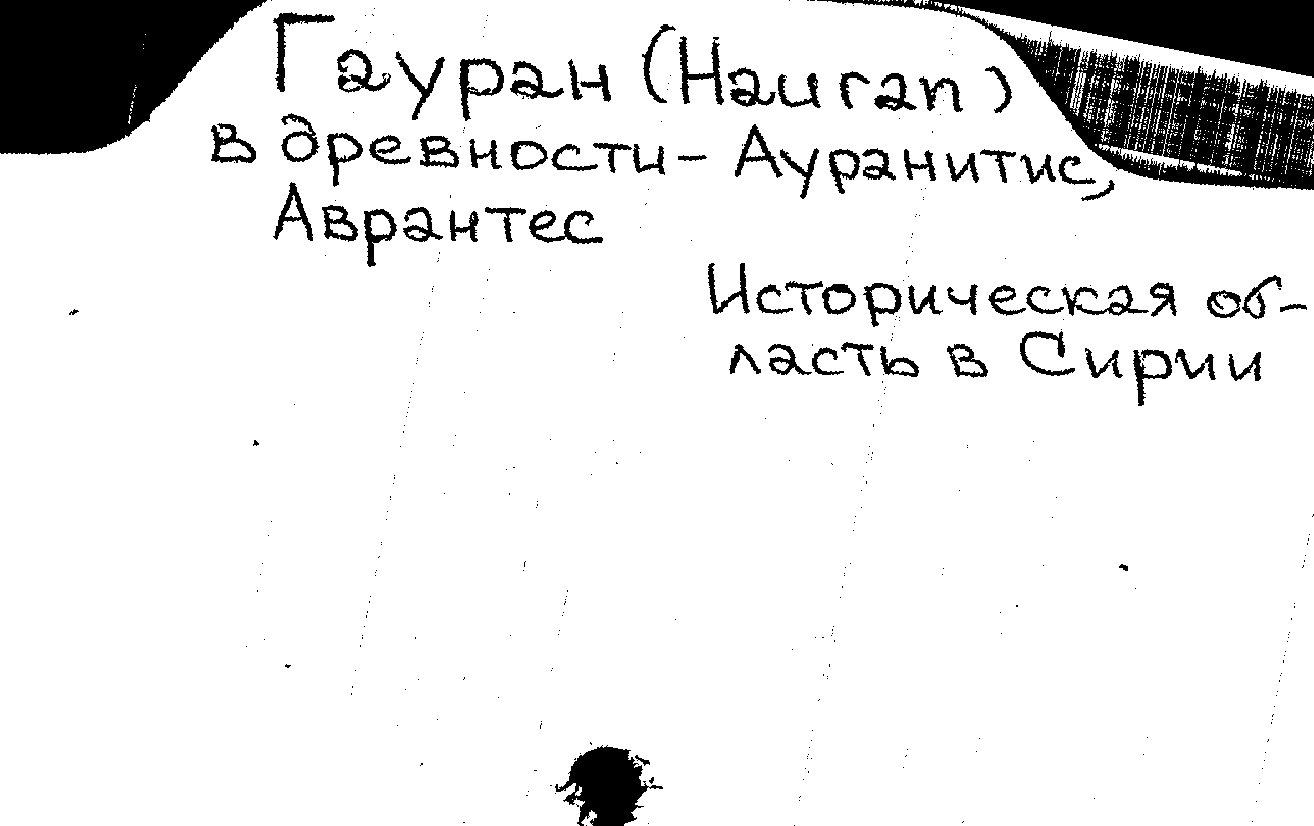 Гауран (Hauran)
в древности - Ауранитис,
Аврантес
Историческая об-
ласть в Сирии